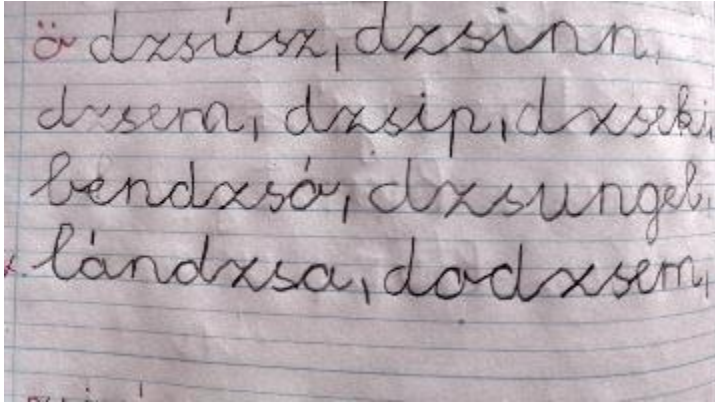 ö dzsúsz, dzsinn,
dzsem, dzsip, dzseki,
bendzsó, dzsungel,
lándzsa, dodzsem,